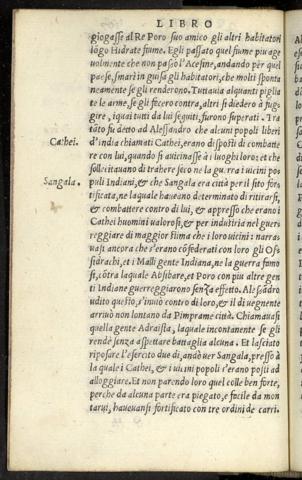 LIBRO
giogasse al Re Poro suo amico gli altri habitatori
lōgo Hidrate fiume. Egli passato quel fiume piu age
uolmente che non passò l'Acesine, andando per quel
paese, smarì in guisa gli habitatori, che molti sponta
neamente se gli renderono. Tuttauia alquanti piglia
te le arme, se gli fecero contra, altri si diedero à fug
gire, i quai tutti da lui seguiti, furono superati. Tra
tāto fu detto ad Alessandro che alcuni popoli liberi
Cathei.
d'india chiamati Cathei, erano disposti di combatte
re con lui, quando si auicinasse à i luoghi loro: et che
sollecitauano di trahere seco ne la guerra i uicini po
Sangala.
puli Indiani, & che Sangala era città per il sito for
tificata, ne laquale haueano determinato di ritirarsi,
& combattere contro di lui, & appresso che erano i
Cathei huomini ualorosi, & per industria nel guer
reggiare di maggior stima che i loro uicini: narra
uasi ancora che s'erano cōfederati con loro gli Ossi
sidrachi, et i Malli gente Indiana, ne la guerra famo
si, cōtra laquale Abisare, et Poro con piu altre gen
ti Indiane guerreggiarono senza effetto. Alessādro
udito questo, s'inuiò contro di loro, & il di uegnente
arriuò non lontano da Pimprame città. Chiamauasi
quella gente Adraista, laquale incontanente se gli
rende senza aspettare battaglia alcuna. Et lasciato
riposare l'esercito due dì, andò uer Sangala, presso à
la quale i Cathei, & i uicini popoli s'erano posti ad
alloggiare. Et non parendo loro quel colle ben forte,
perche da alcuna parte era piegato, e facile da mon
tarui, haueuansi fortificato con tre ordini de carri.